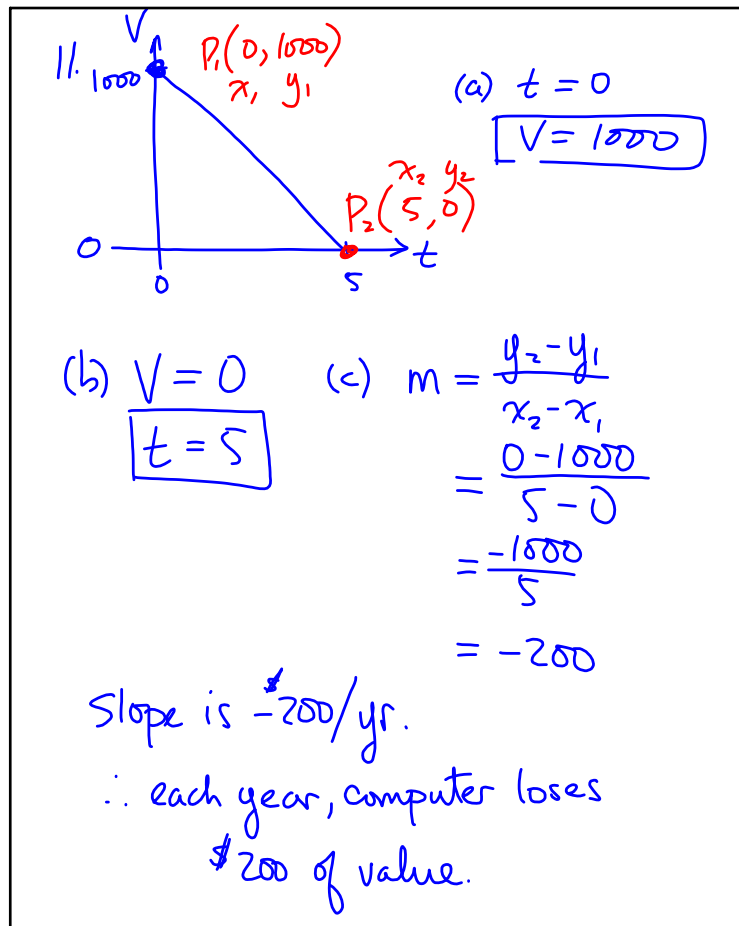 11.
V
1000
P₁(0, 1000)
x₁ y₁
(a) t = 0
V = 1000
x₂ y₂
P₂(5, 0)
0
t
0
5
(b) V = 0
t = 5
(c) m = y₂ - y₁ / x₂ - x₁
= 0 - 1000 / 5 - 0
= -1000 / 5
= -200
Slope is -$200/yr.
∴ each year, computer loses
$200 of value.